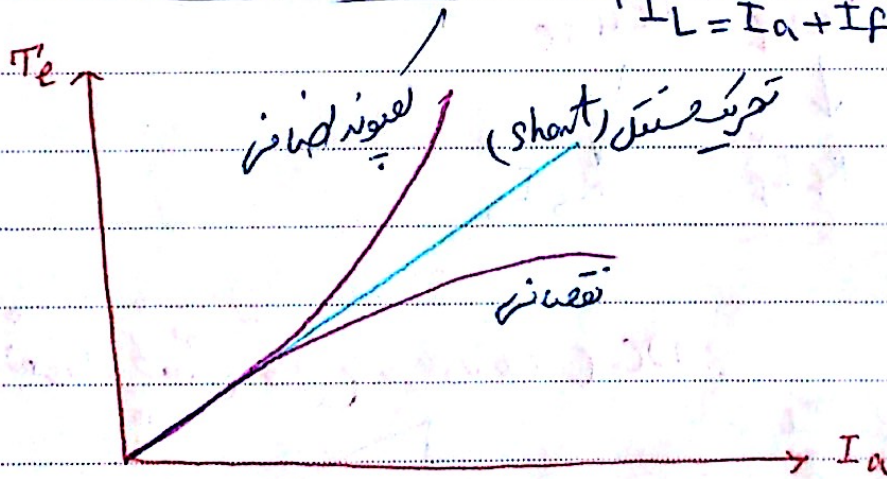 I_L = I_a + I_f
T_e
پیوند اضافی
تحریک مستقل (shont)
نقصانی
I_a